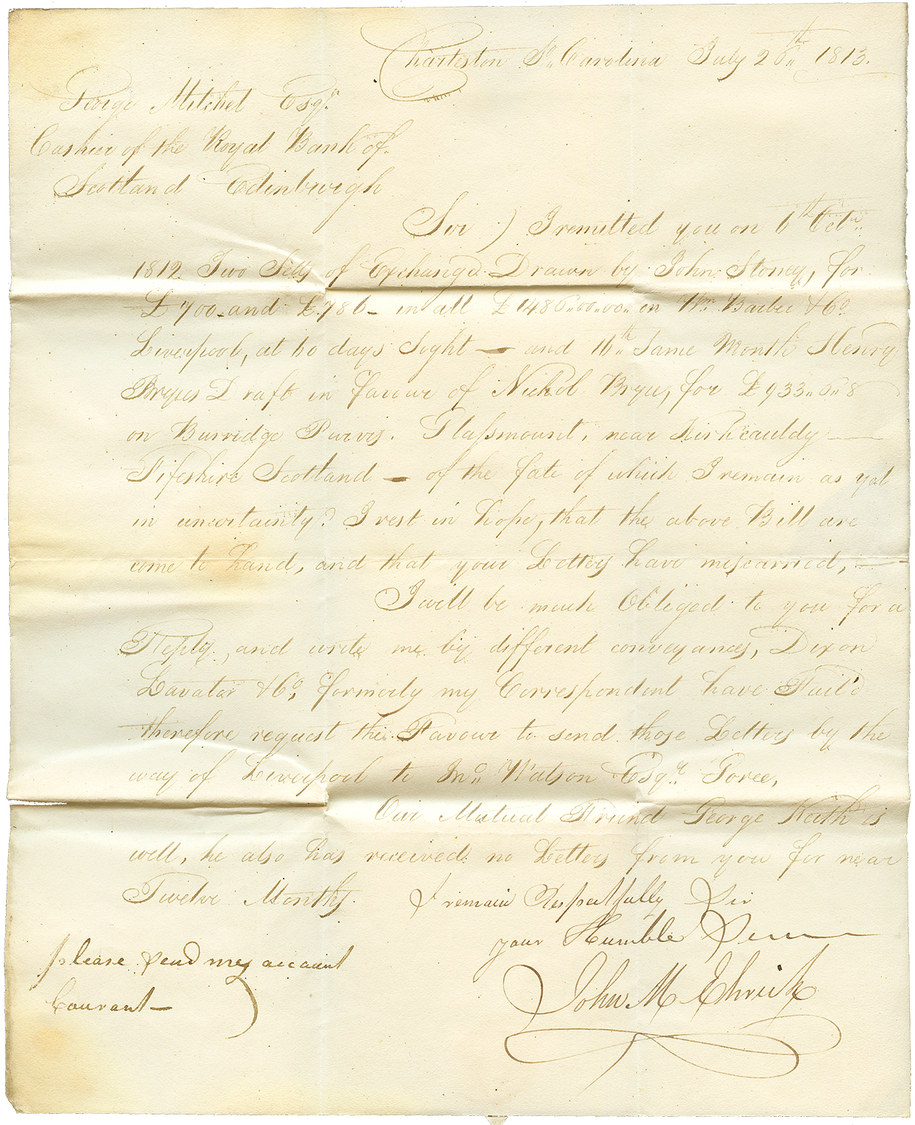 Charleston So. Carolina July 28th 1813.
George Mitchel Esqr.
Cashier of the Royal Bank of
Scotland Edinburgh
Sir) I remitted you on 6th Octr.
1812 Two Setts of Exchange Drawn by John Stoney, for
£700 and £786 in all £1486..00..00 on Wm. Barber & Co.
Liverpool, at 60 days Sight — and 16th Same Month Henry
Bryce Draft in favour of Nichol Bryce, for £933..
on Burridge Purvis. Glassmount, near Kirkcauldy
Fifeshire Scotland — of the fate of which I remain as yet
in uncertainty? I rest in hope, that the above Bill are
come to hand, and that your Letters have miscarried,
I will be much Obliged to you for a
Reply, and write me by different conveyances, Dixon
Lavater & Co, formerly my Correspondent have Fail'd
therefore request the Favour to send those Letters by the
way of Liverpool to Esqr.
Our Mutual Friend George Keith is
well, he also has received no Letters from you for near
Twelve Months. I remain Respectfully Sir
your Humble Serv
please send my account
Courant —
John M Ehrick